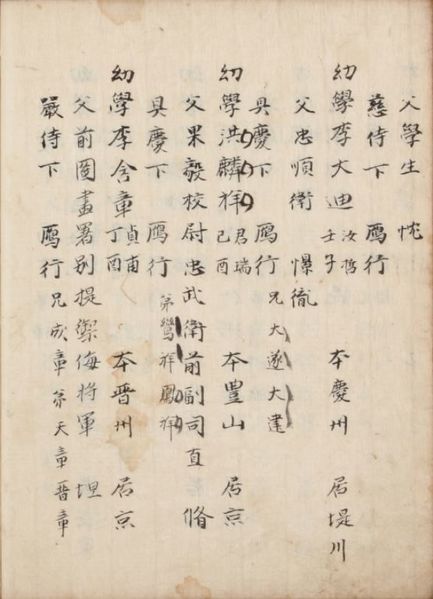 父學生 忱
慈侍下 鴈行
幼學李大迪 汝哲 壬子 本慶州 居堤川
父忠順衛 憬胤
具慶下 鴈行 兄大遂大建
幼學洪麟祥 君瑞 己酉 本豊山 居京
父果毅校尉忠武衛前副司直 脩
具慶下 鴈行 弟鸞祥鳳祥
幼學李含章 貞甫 丁酉 本晋州 居京
父前圖畫署別提禦侮將軍 坦
嚴侍下 鴈行 兄成章 弟天章晋章